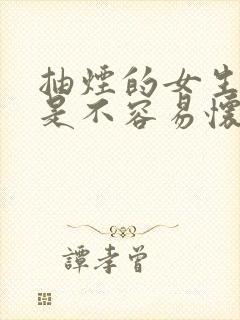 抽煙的女生
是不容易懷
譚孝曾